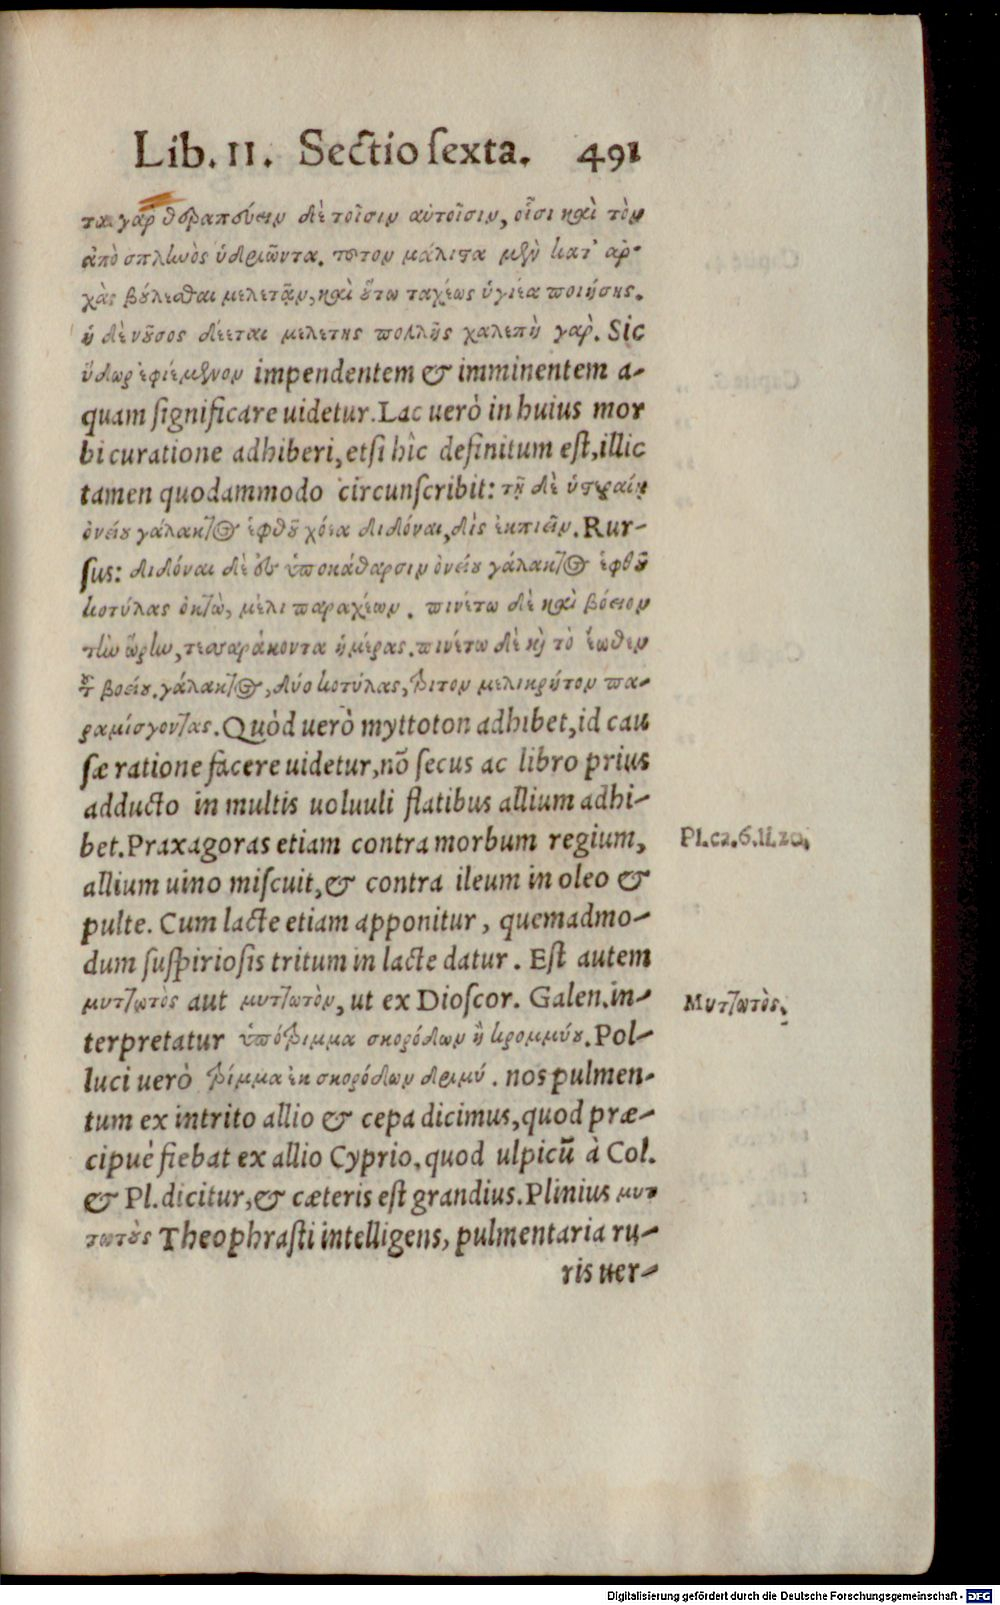 Lib. II. Sectio sexta. 491
τα γαρ θεραπεύειν δὲ τοῖσιν αὐτοῖσιν, οἷσι καὶ τὸν
ἀπὸ σπληνὸς ὑδριῶντα. τοῦτον μάλιστα μὲν κατ' ἀρ-
χὰς βούλεσθαι μελετᾶν, καὶ οὕτω ταχέως ὑγιέα ποιήσῃς.
ἡ δὲ νοῦσος δέεται μελετης πολλῆς χαλεπὴ γαρ. Sic
ὕδωρ ἐφιέμενον impendentem & imminentem a-
quam significare uidetur. Lac uerò in huius mor
bi curatione adhiberi, etsi hîc definitum est, illic
tamen quodammodo circunscribit: τῇ δὲ ὑστεραίῃ
ὀνείου γάλακτος ἑφθοῦ χόεα διδόναι, δὶς ἐκπιεῖν. Rur-
sus: διδόναι δὲ ἐς ὑποκάθαρσιν ὀνείου γάλακτος ἑφθοῦ
κοτύλας ὀκτὼ, μέλι παραχέων. πινέτω δὲ καὶ βόειον
τὴν ὥρην, τεσσαράκοντα ἡμέρας. πινέτω δὲ καὶ τὸ ἕωθεν
τοῦ βοείου γάλακτος, δύο κοτύλας, τρίτον μελικρήτου πα-
ραμίσγοντας. Quòd uerò myttoton adhibet, id cau
sæ ratione facere uidetur, nõ secus ac libro prius
adducto in multis uoluuli flatibus allium adhi-
bet. Praxagoras etiam contra morbum regium,
allium uino miscuit, & contra ileum in oleo &
pulte. Cum lacte etiam apponitur, quemadmo-
dum suspiriosis tritum in lacte datur. Est autem
μυττωτὸς aut μυττωτὸν, ut ex Dioscor. Galen. in-
terpretatur ὑπότριμμα σκορόδων ἢ κρομμύου. Pol-
luci uerò τρίμμα ἐκ σκορόδων δριμύ. nos pulmen-
tum ex intrito allio & cepa dicimus, quod præ-
cipuè fiebat ex allio Cyprio, quod ulpicũ à Col.
& Pl. dicitur, & cæteris est grandius. Plinius μυτ
τωτοὺς Theophrasti intelligens, pulmentaria ru-
ris uer-
Pl. ca. 6. li. 20.
Μυττωτὸς.
Digitalisierung gefördert durch die Deutsche Forschungsgemeinschaft - DFG